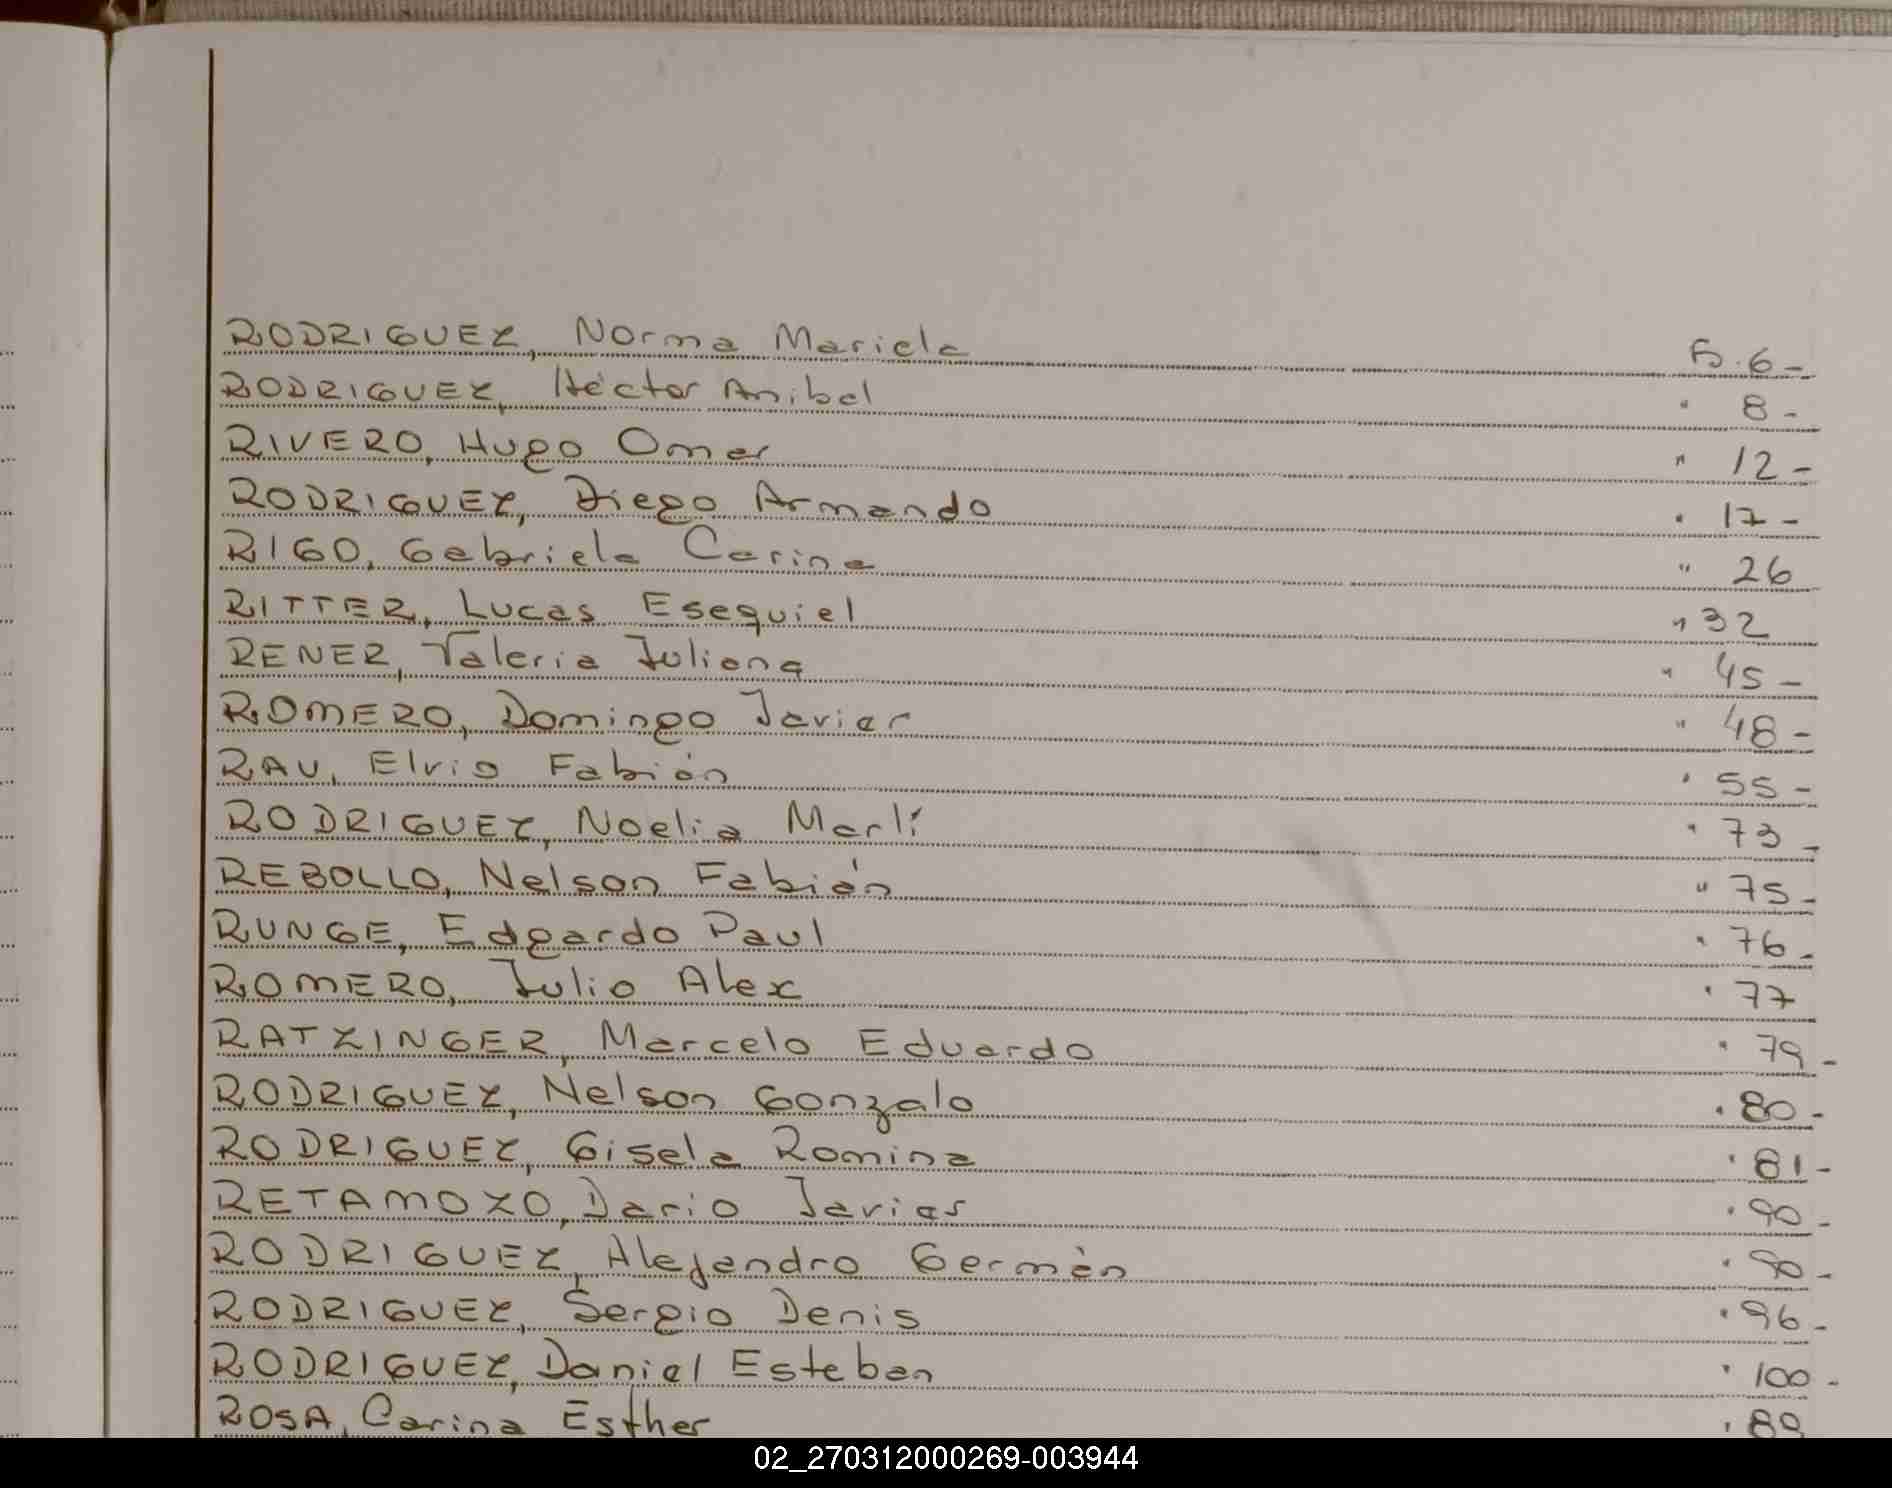 RODRIGUEZ, Norma Mariela Fo. 6 -
RODRIGUEZ, Héctor Anibal " 8 -
RIVERO, Hugo Omar " 12 -
RODRIGUEZ, Diego Armando " 17 -
RIGO, Gabriela Carina " 26
RITTER, Lucas Esequiel " 32
RENER, Valeria Juliana " 45 -
ROMERO, Domingo Javier " 48 -
RAU, Elvio Fabián " 55 -
RODRIGUEZ, Noelia Marlí " 73 -
REBOLLO, Nelson Fabián " 75 -
RUNGE, Edgardo Paul " 76 -
ROMERO, Julio Alex " 77
RATZINGER, Marcelo Eduardo " 79 -
RODRIGUEZ, Nelson Gonzalo " 80 -
RODRIGUEZ, Gisela Romina " 81 -
RETAMOZO, Dario Javier " 90 -
RODRIGUEZ, Alejandro Germán " 90 -
RODRIGUEZ, Sergio Denis " 96 -
RODRIGUEZ, Daniel Esteban " 100 -
ROSA, Carina Esther " 89
02_270312000269-003944